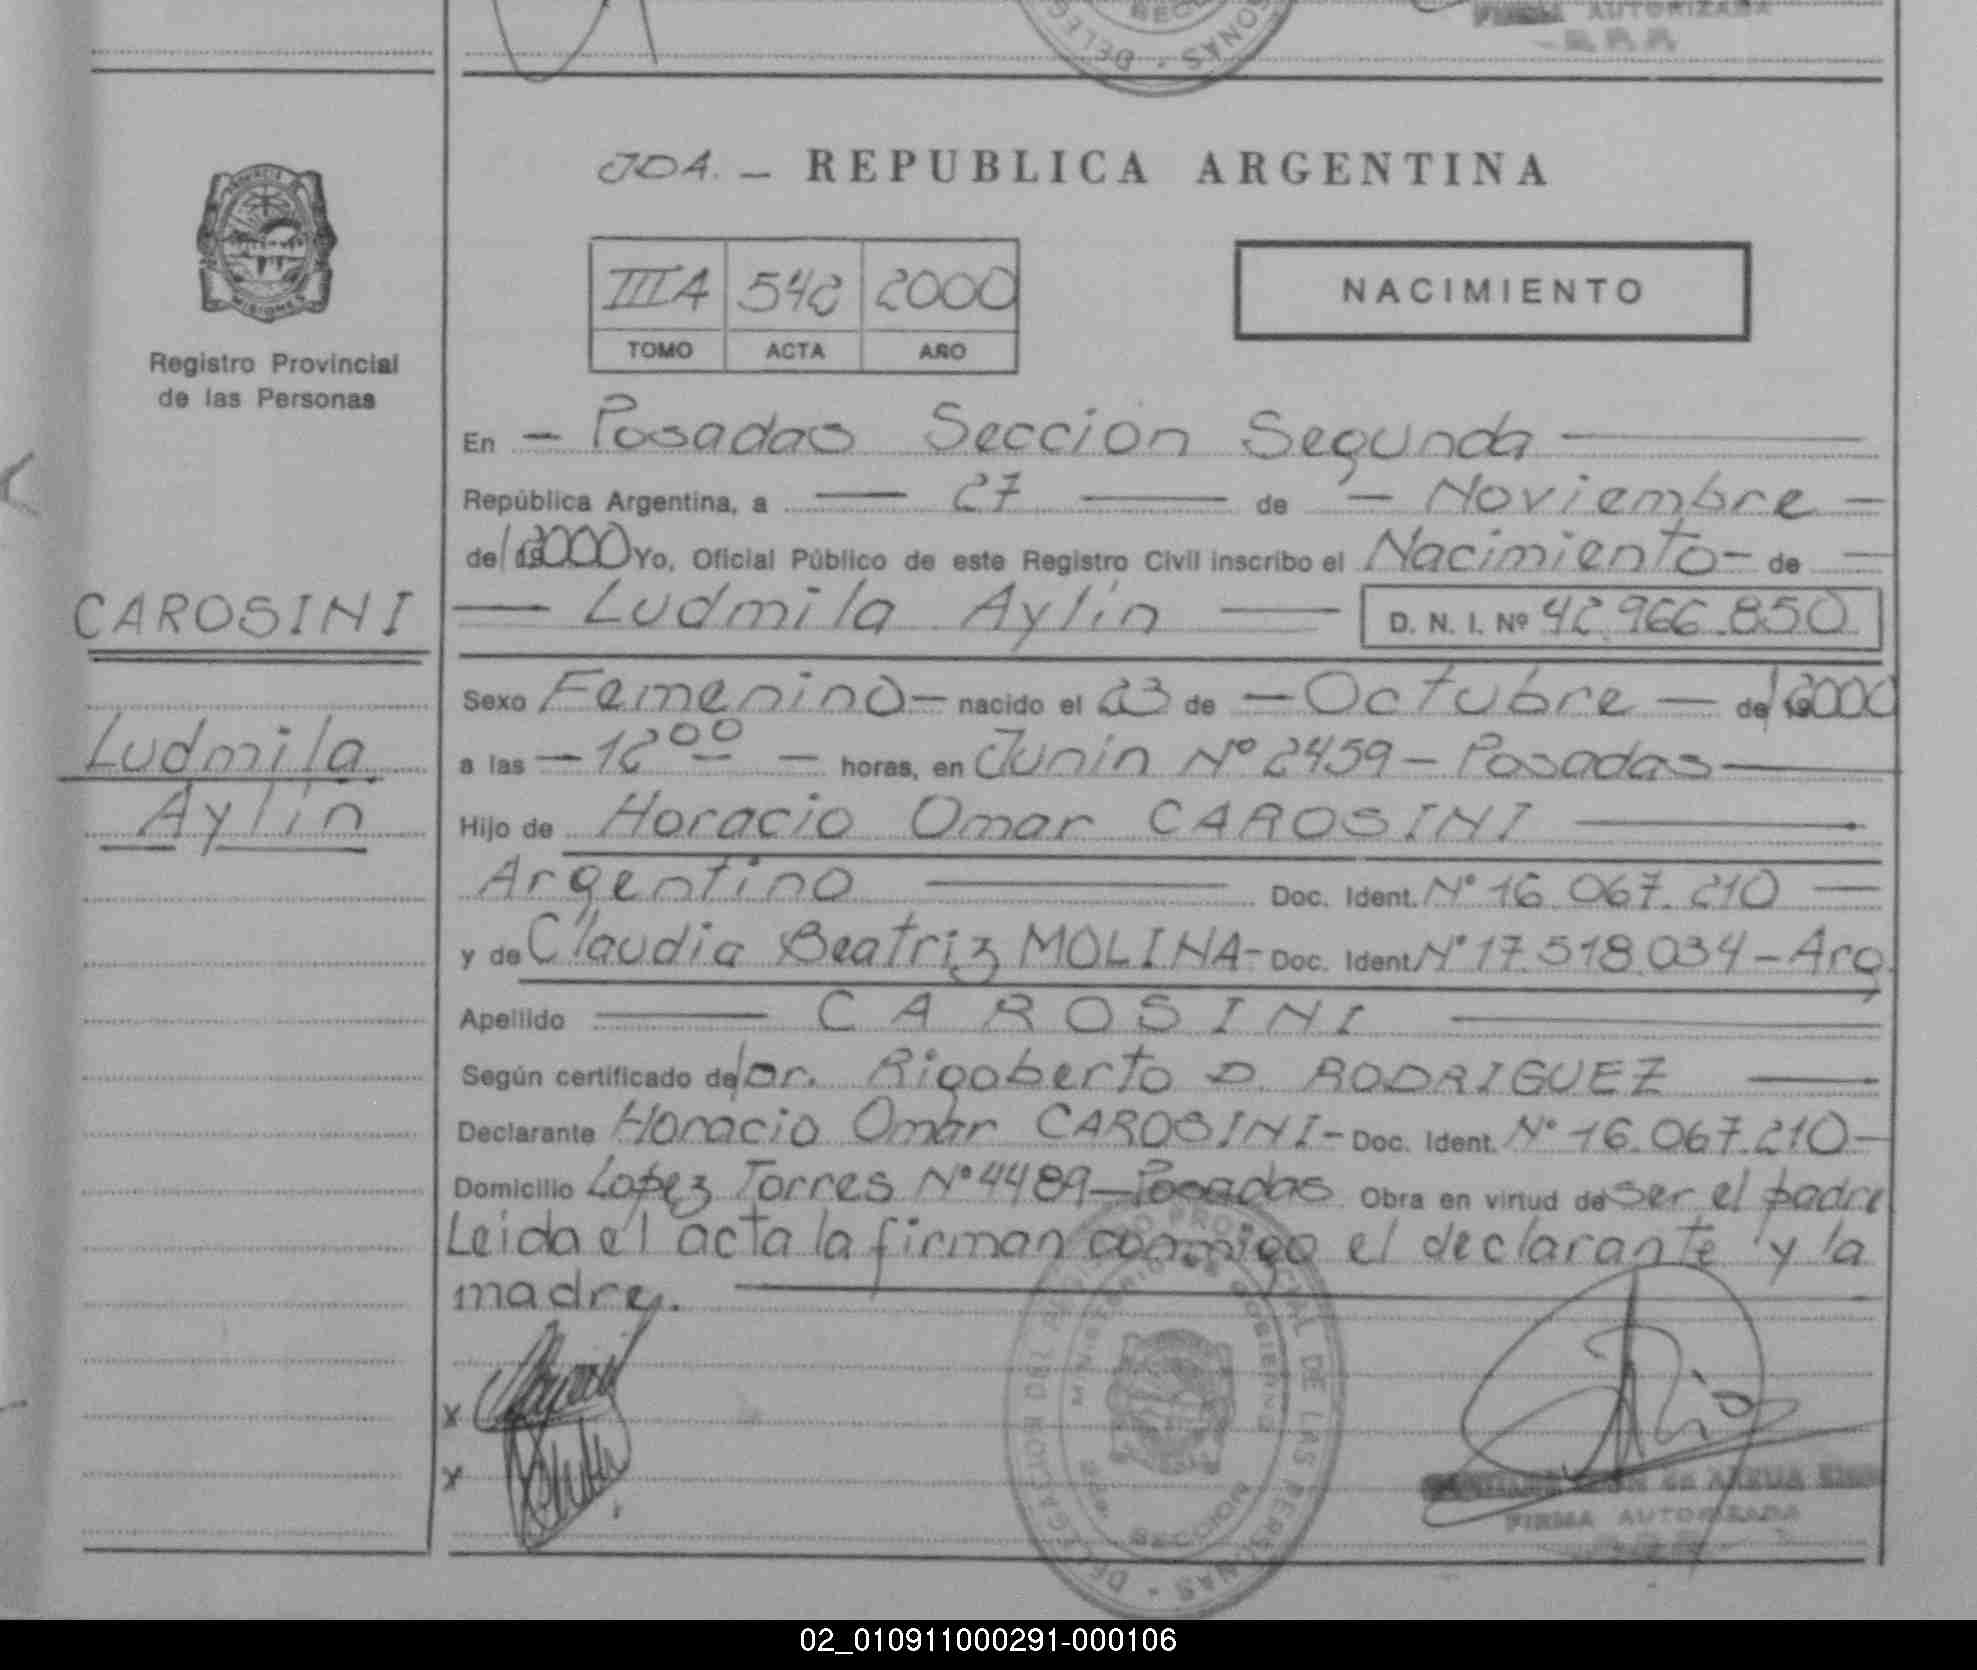 FIRMA AUTORIZADA
JDA. - REPUBLICA ARGENTINA
IIIA 542 2000
TOMO ACTA AÑO
NACIMIENTO
Registro Provincial
de las Personas
En - Posadas Seccion Segunda
República Argentina, a 27 de - Noviembre -
de/192000 Yo, Oficial Público de este Registro Civil inscribo el Nacimiento - de
CAROSINI
Ludmila Aylín D. N. I. Nº 42.966.850
Sexo Femenino - nacido el 23 de - Octubre - de/192000
Ludmila
Aylín
a las - 12 00 - horas, en Junin Nº 2459 - Posadas
Hijo de Horacio Omar CAROSINI
Argentino Doc. Ident. Nº 16.067.210
y de Claudia Beatriz MOLINA - Doc. Ident. Nº 17.518.034 - Arg.
Apellido CAROSINI
Según certificado de/Dr. Rigoberto D. RODRIGUEZ
Declarante Horacio Omar CAROSINI - Doc. Ident. Nº 16.067.210 -
Domicilio Lopez Torres Nº 4489 - Posadas Obra en virtud de ser el padre
Leida el acta la firman conmigo el declarante y la
madre.
x
x
DELEGACION DEL REGISTRO PROVINCIAL DE LAS PERSONAS
MINISTERIO DE GOBIERNO
SECCION
FIRMA AUTORIZADA
02_010911000291-000106